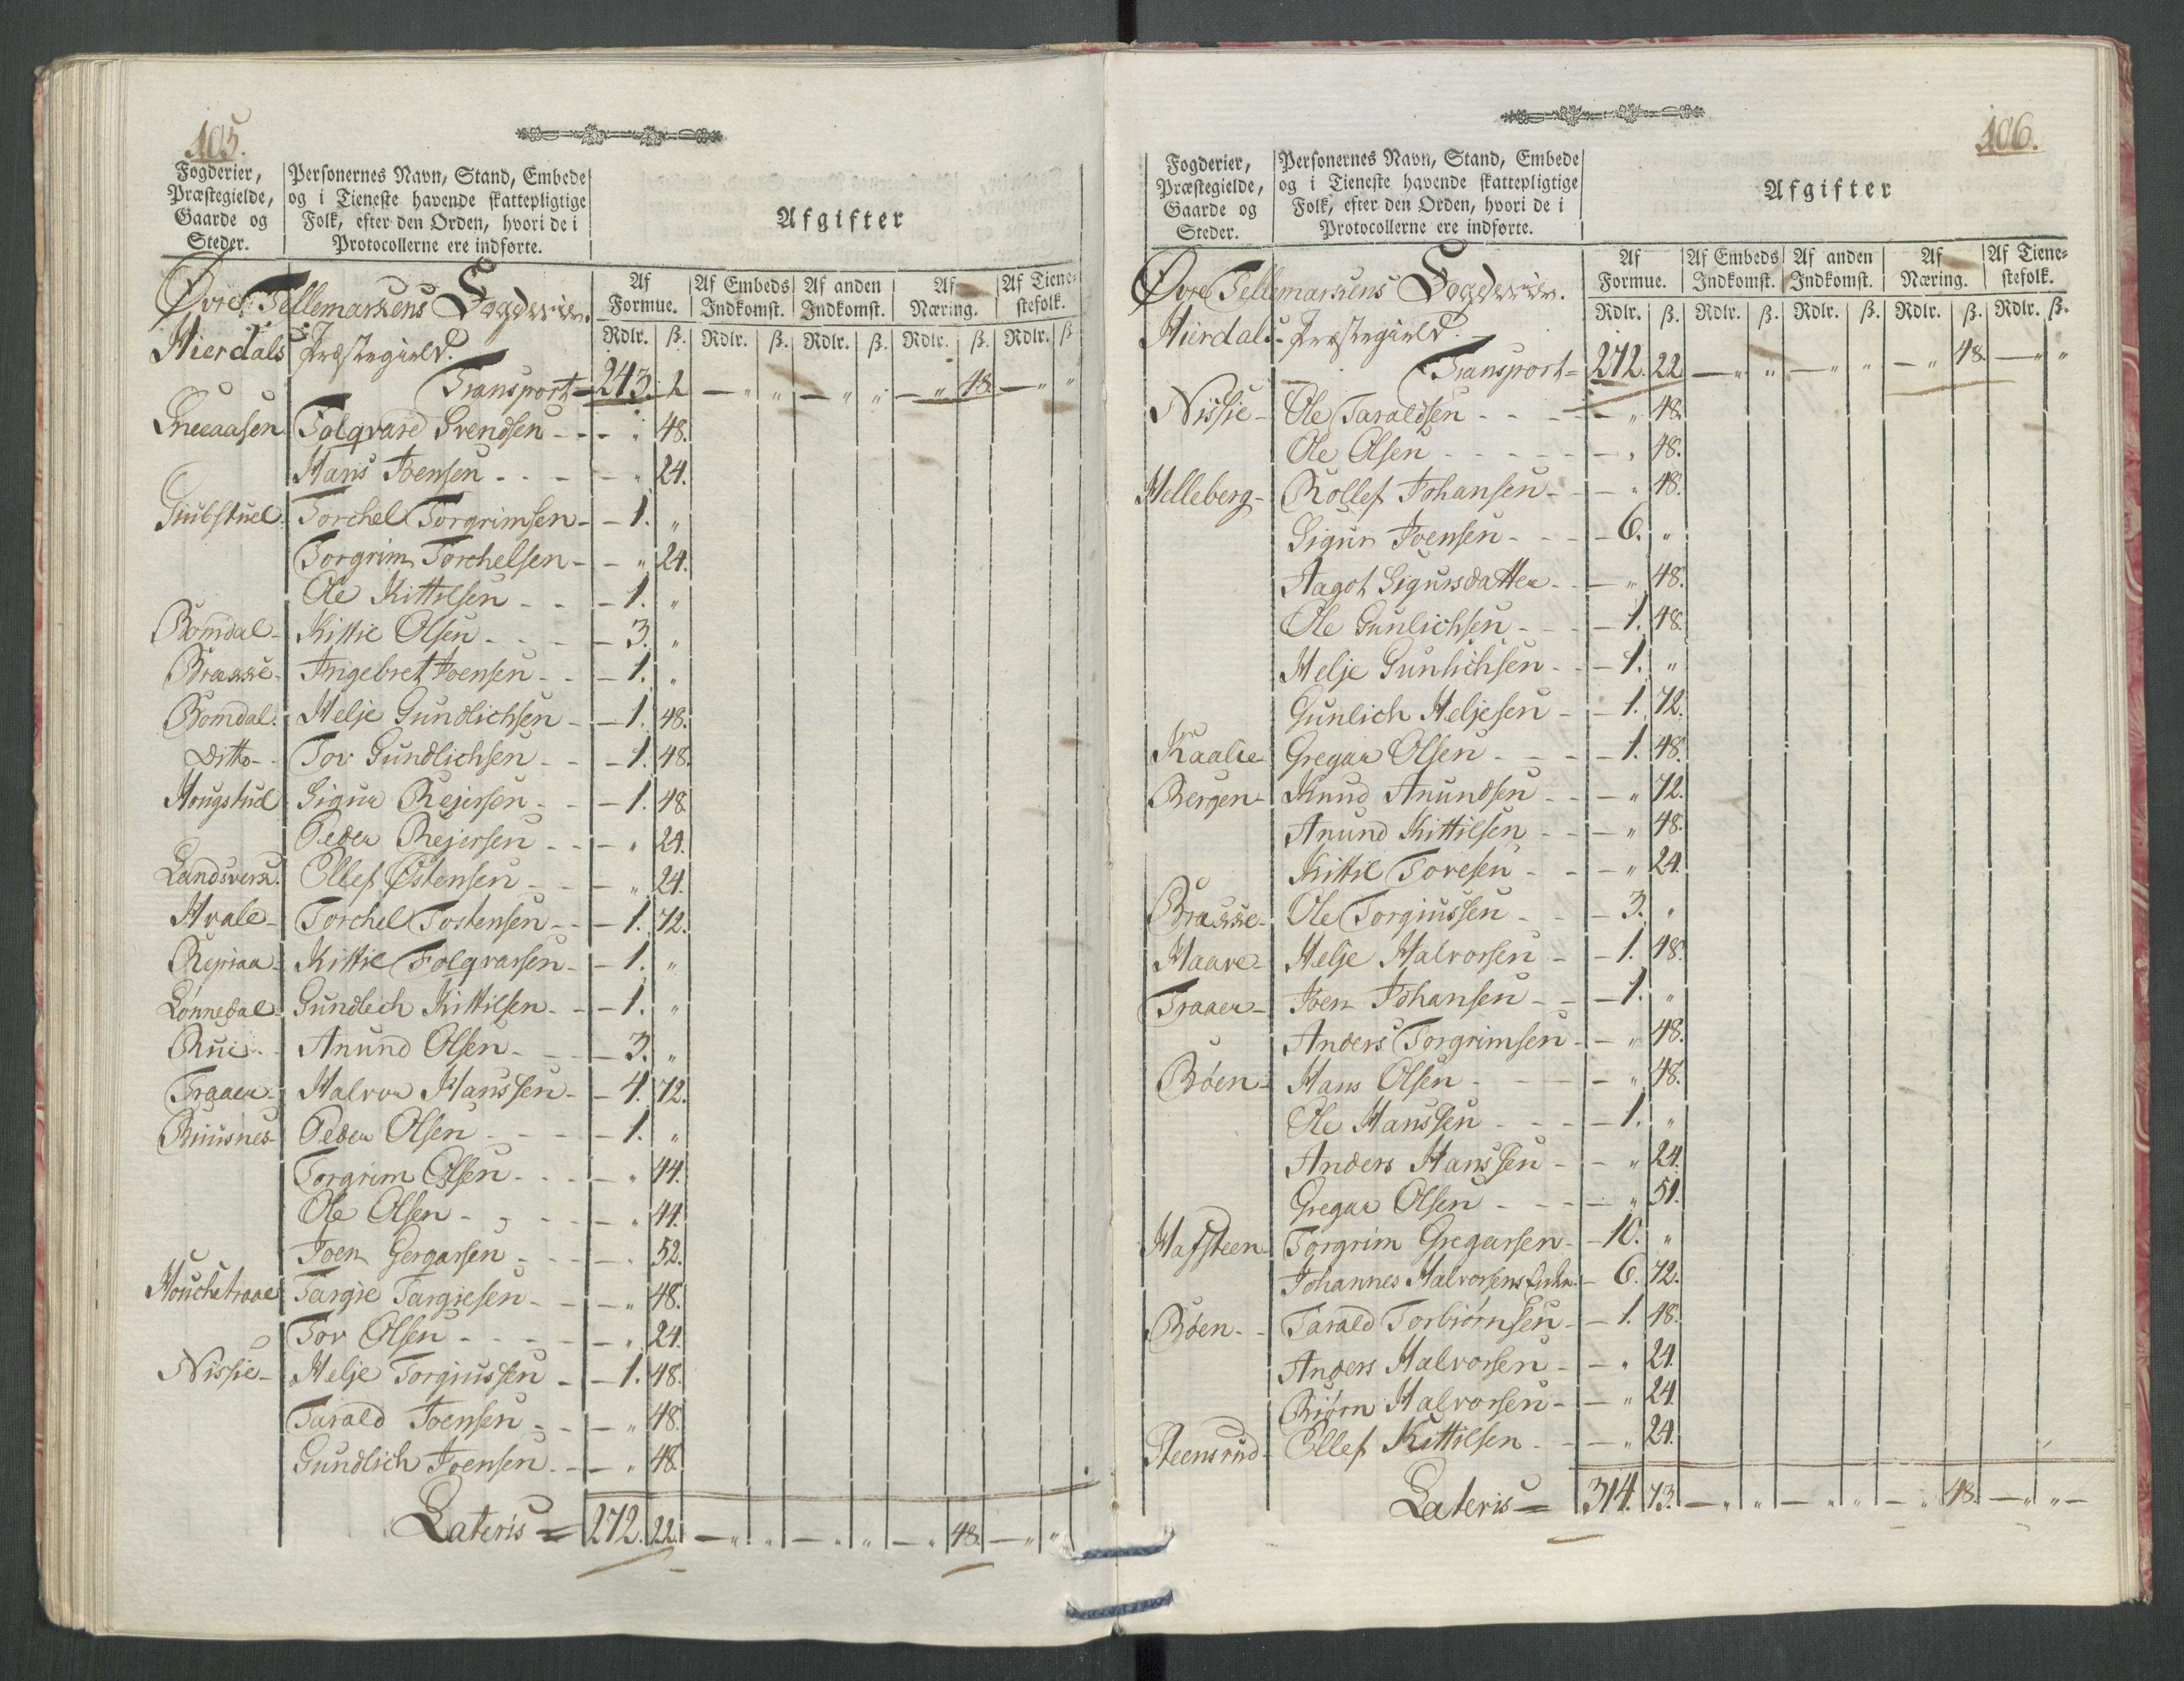 105.
Fogderier, Præstegielde, Gaarde og Steder.
Personernes Navn, Stand, Embede og i Tieneste havende skattepligtige Folk, efter den Orden, hvori de i Protocollerne ere indførte.
Afgifter
Af Formue. Af Embeds Indkomst. Af anden Indkomst. Af Næring. Af Tienestefolk.
Rdlr. ß. Rdlr. ß. Rdlr. ß. Rdlr. ß. Rdlr. ß
Øvre Tellemarkens Fogderie.
Hierdals Præstegield.
Transport 243. 2 — „ „ — „ „ — „ 48. — „ „
Folqvard Svendsen - - - „ 48.
Hans Joensen - - - „ 24.
Giubstuel Torchel Torgrimsen - 1. „
Torgrim Torchelsen - - „ 24.
Ole Kittilsen - - - 1. „
Bomdal - Kittil Olsen - - - 3. „
Ingebret Joensen - - 1. „
Bomdal. Helje Gundlichsen - 1. 48.
Ditto - Tov Gundlichsen - - 1. 48.
Hougstul Sigur Rejersen - - 1. 48
Peder Rejersen - - - „ 24.
Landsverk. Ellef Østensen - - „ 24.
Hvale - Torchel Tostensen - - 1. 72.
Kittil Folqvarsen - 1. „
Lønnedal Gundlech Kittilsen - - 1. „
Rui - Anund Olsen - - 3. „
Traaer - Halvor Hanssen - 4. 72.
Ruusnes - Peder Olsen - - - 1. „
Torgrim Olsen - - - „ 44.
Ole Olsen - - - „ 44.
Joen Gergarsen - - - „ 52.
Houchetraae Targie Targiesen - - „ 48.
Tov Olsen - - - „ 24.
Nissie - Helje Torgiussen - - 1. 48.
Tarald Joensen - - „ 48.
Gundlich Joensen - - „ 48.
Lateris = 272. 22. — „ „ — „ „ — „ 48. — „ „
106.
Fogderier, Præstegielde, Gaarde og Steder.
Personernes Navn, Stand, Embede og i Tieneste havende skattepligtige Folk, efter den Orden, hvori de i Protocollerne ere indførte.
Afgifter
Af Formue. Af Embeds Indkomst. Af anden Indkomst. Af Næring. Af Tienestefolk.
Rdlr. ß. Rdlr. ß. Rdlr. ß. Rdlr. ß. Rdlr. ß.
Øvre Tellemarkens Fogderie.
Hierdals - Præstegield. -
Transport = 272. 22 — „ „ — „ „ — „ 48. — „ „
Nissie - Ole Taraldsen - - - „ 48.
Ole Olsen - - - - „ 48.
Helleberg - Rollef Johansen - - „ 48.
Sigur Joensen - - - 6. „
Aagot Sigursdatter - - „ 48.
Ole Gunlichsen - - 1. 48.
Helje Gunlichsen - - 1. „
Gunlich Heljesen - - 1. 72.
Kaalie Gregar Olsen - - - 1. 48.
Bergen - Knud Anundsen - - „ 72.
Anund Kittilsen - - „ 48.
Kittil Tovesen - - „ 24.
Ole Torgiussen - - 3. „
Haave - Helje Halvorsen - - 1. 48.
Traaer - Joen Johansen - - 1. „
Anders Torgrimsen - - „ 48.
Bøen - Hans Olsen - - - „ 48.
Ole Hanssen - - - 1. „
Anders Hanssen - - „ 24.
Gregar Olsen - - - „ 51.
Hafsteen Torgrim Gregarsen - 10. „
Johannes Halvorsens - 6. 72.
Bøen - - Tarald Torbiørnsen - 1. 48.
Anders Halvorsen - - „ 24.
Biørn Halvorsen - - „ 24.
Steensrud - Ellef Kittilsen - - „ 24.
Lateris = 314. 73. — „ „ — „ „ — „ 48. — „ „ —